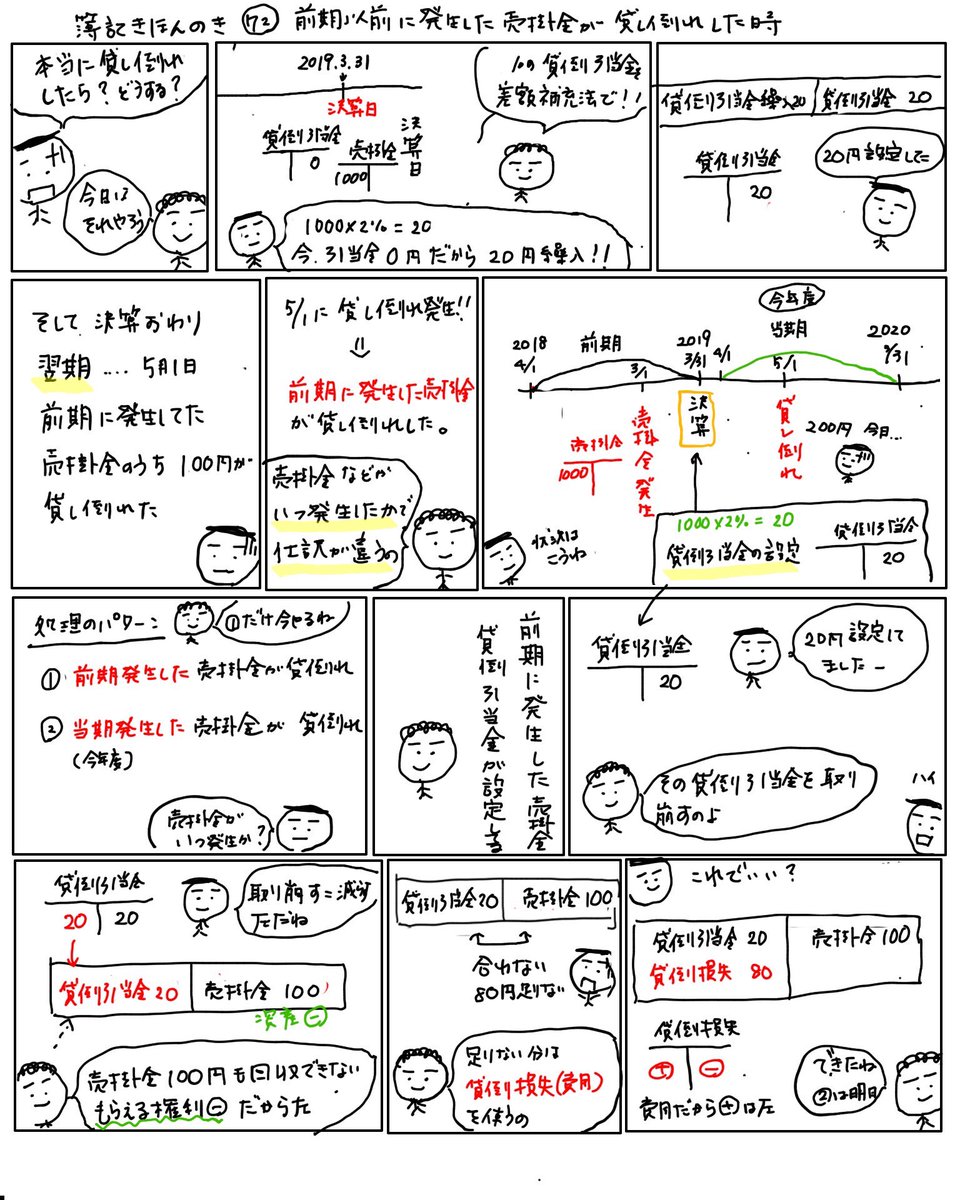 簿記きほんのき 72 前期以前に発生した売掛金が貸し倒れした時
本当に貸し倒れ
したら?どうする?
今日は
それやろう
2019.3.31
決算日
貸倒引当金
0
売掛金
1000
決算日
%の貸倒引当金を
差額補充法で!!
1000×2%=20
今.引当金0円だから20円繰入!!
貸倒引当金繰入20
貸倒引当金 20
貸倒引当金
20
20円設定した
そして決算おわり
翌期....5月1日
前期に発生してた
売掛金のうち100円が
貸し倒れた
5/1に貸し倒れ発生!!
前期に発生した売掛金
が貸し倒れした。
売掛金などが
いつ発生したかで
仕訳が違うの
今年度
当期
前期
2018
4/1
3/1
2019
3/31
4/1
5/1
2020
3/31
売掛金
1000
売掛金発生
決算
貸し倒れ
200円 今日...
状況は
こうね
1000×2%=20
貸倒引当金の設定
貸倒引当金
20
処理のパターン
①だけ今やるね
① 前期発生した売掛金が貸倒れ
② 当期発生した売掛金が貸倒れ
(今年度)
売掛金が
いつ発生か?
前期に発生した売掛金
貸倒引当金が設定してる
貸倒引当金
20
20円設定して
ましたー
その貸倒引当金を取り
崩すのよ
ハイ
貸倒引当金
20
20
取り崩す=減少
左だね
貸倒引当金 20
売掛金 100
資産㊀
売掛金100円も回収できない
もらえる権利㊀だからた
貸倒引当金20
売掛金100
合わない
80円足りない
足りない分は
貸倒損失(費用)
を使うの
これでいい?
貸倒引当金 20
売掛金100
貸倒損失 80
貸倒損失
⊕
㊀
費用だから⊕は左
できたね
②は明日